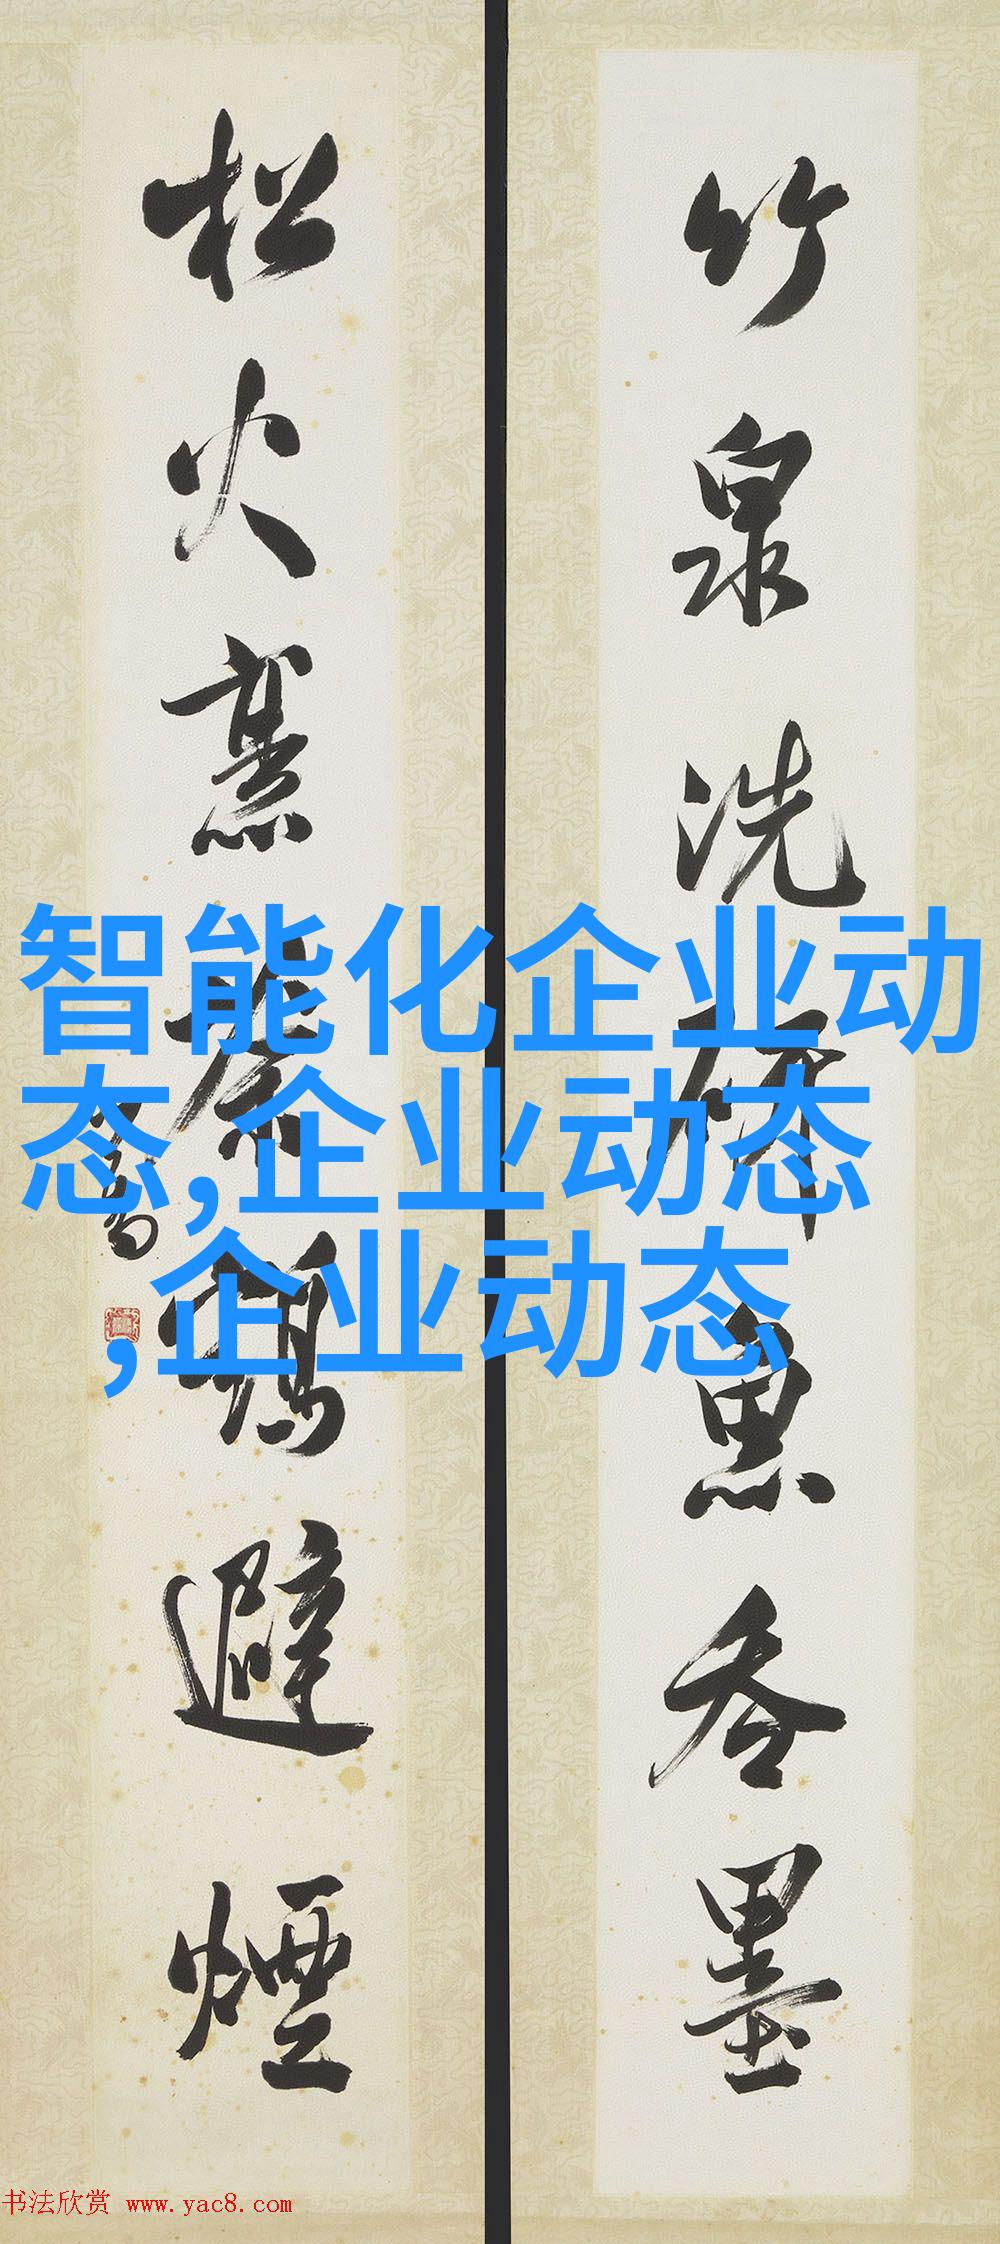 竹泉洗研魚吞墨
松火烹茶鶴避煙
智能化企业动
态,企业动态
,企业动态
书法欣赏 www.yac8.com